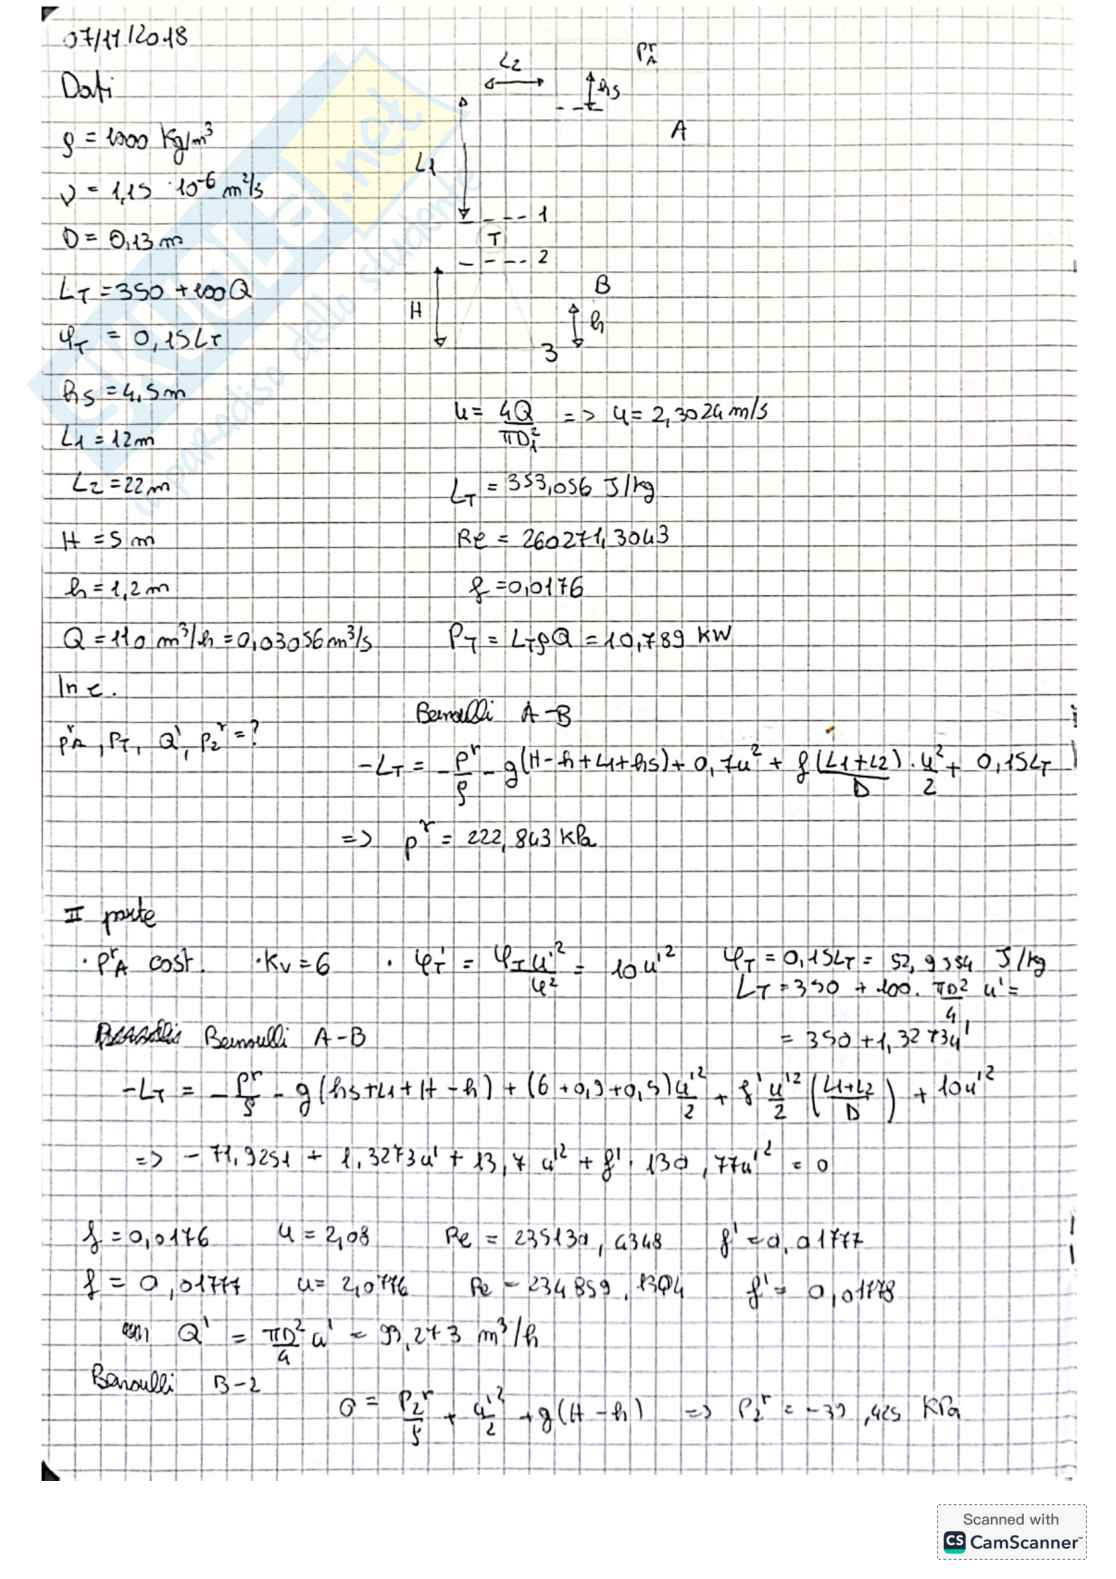 07/11/2018
Dati
ρ = 1000 Kg/m³
ν = 1,15 · 10⁻⁶ m²/s
D = 0,13 m
L_T = 350 + 100Q
φ_T = 0,15L_T
hs = 4,5m
L1 = 12m
L2 = 22m
H = 5 m
h = 1,2 m
Q = 110 m³/h = 0,03056 m³/s
Inc.
p^r_A, P_T, Q', p_2^r = ?
L2
P^r_A
hs
A
L1
1
T
2
B
H
h
3
u = 4Q/πD_1² => u = 2,3024 m/s
L_T = 353,056 J/kg
Re = 260271,3043
f = 0,0176
P_T = L_TρQ = 10,789 KW
Bernoulli A-B
-L_T = -p^r/ρ - g(H-h+L1+hs) + 0,7u² + f (L1+L2)/D · u²/2 + 0,15L_T
=> p^r = 222,843 KPa
II parte
· p^r_A cost. · Kv = 6 · φ_T' = φ_T u'²/u² = 10u'² φ_T = 0,15L_T = 52,9584 J/kg
L_T = 350 + 100 · πD²/4 u' =
= 350 + 1,3273u'
Bernoulli A-B
-L_T = -p^r/ρ - g(hs+L1+H-h) + (6+0,9+0,5)u'²/2 + f' u'²/2 ((L1+L2)/D) + 10u'²
=> -71,9251 + 1,3273u' + 13,7 u'² + f' · 130,77u'² = 0
f = 0,0176 u = 2,08 Re = 235130,4348 f' = 0,01777
f = 0,01777 u = 2,0776 Re = 234859,1304 f' = 0,01778
Q' = πD²/4 u' = 99,273 m³/h
Bernoulli B-2
0 = p_2^r/ρ + u'²/2 + g(H-h) => p_2^r = -39,425 KPa
Scanned with
CS CamScanner